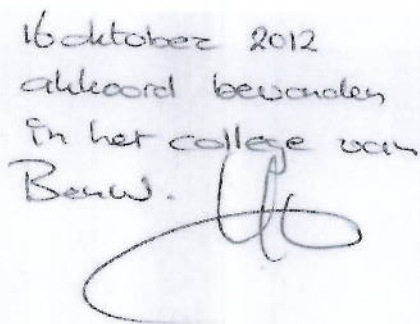 16 oktober 2012
akkoord bevonden
in het college van
BenW.